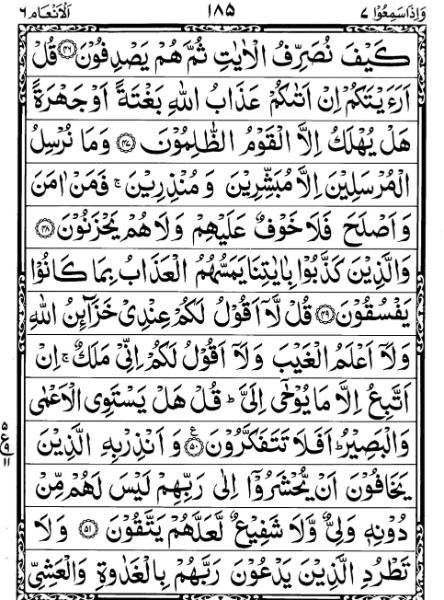 وَاِذَاسَمِعُوْا ٧ ١٨٥ اَلْاَنْعَام ٦
كَيْفَ نُصَرِّفُ الْاٰيٰتِ ثُمَّ هُمْ يَصْدِفُوْنَ ﴿٤٦﴾ قُلْ
اَرَءَيْتَكُمْ اِنْ اَتٰىكُمْ عَذَابُ اللهِ بَغْتَةً اَوْ جَهْرَةً
هَلْ يُهْلَكُ اِلَّا الْقَوْمُ الظّٰلِمُوْنَ ﴿٤٧﴾ وَمَا نُرْسِلُ
الْمُرْسَلِيْنَ اِلَّا مُبَشِّرِيْنَ وَمُنْذِرِيْنَ ۚ فَمَنْ اٰمَنَ
وَاَصْلَحَ فَلَا خَوْفٌ عَلَيْهِمْ وَلَا هُمْ يَحْزَنُوْنَ ﴿٤٨﴾
وَالَّذِيْنَ كَذَّبُوْا بِاٰيٰتِنَا يَمَسُّهُمُ الْعَذَابُ بِمَا كَانُوْا
يَفْسُقُوْنَ ﴿٤٩﴾ قُلْ لَّآ اَقُوْلُ لَكُمْ عِنْدِيْ خَزَآئِنُ اللهِ
وَلَآ اَعْلَمُ الْغَيْبَ وَلَآ اَقُوْلُ لَكُمْ اِنِّيْ مَلَكٌ ۚ اِنْ
اَتَّبِعُ اِلَّا مَا يُوْحٰٓى اِلَيَّ ؕ قُلْ هَلْ يَسْتَوِى الْاَعْمٰى
وَالْبَصِيْرُ ؕ اَفَلَا تَتَفَكَّرُوْنَ ﴿٥٠﴾ وَاَنْذِرْ بِهِ الَّذِيْنَ
يَخَافُوْنَ اَنْ يُّحْشَرُوْٓا اِلٰى رَبِّهِمْ لَيْسَ لَهُمْ مِّنْ
دُوْنِهٖ وَلِيٌّ وَّلَا شَفِيْعٌ لَّعَلَّهُمْ يَتَّقُوْنَ ﴿٥١﴾ وَلَا
تَطْرُدِ الَّذِيْنَ يَدْعُوْنَ رَبَّهُمْ بِالْغَدٰوةِ وَالْعَشِيِّ
٥
ع
١١